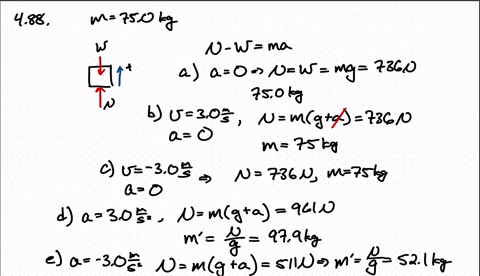 4.88. m = 75.0 kg
W
+
N
N - W = ma
a) a = 0 ⇒ N = W = mg = 736N
75.0 kg
b) v = 3.0 m/s, N = m(g+a) = 736N
a = 0
m = 75 kg
c) v = -3.0 m/s ⇒ N = 736N, m = 75 kg
a = 0
d) a = 3.0 m/s², N = m(g+a) = 961N
m' = N/g = 97.9 kg
e) a = -3.0 m/s² N = m(g+a) = 511N ⇒ m' = N/g = 52.1 kg